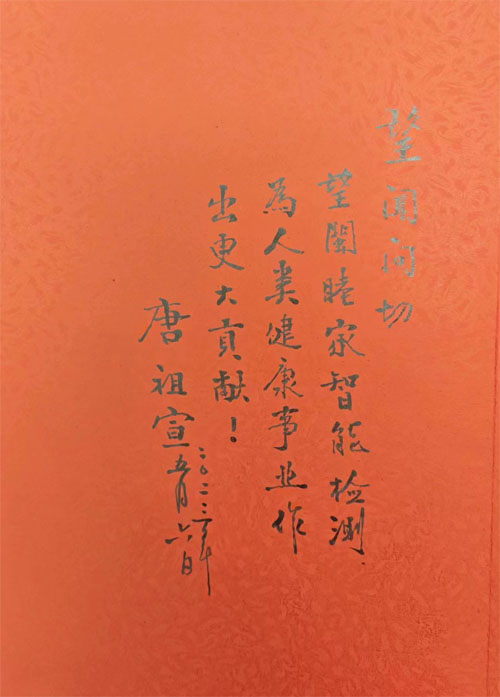 望闻问切
望睦家智能检测、
為人类健康事业作
出更大贡献！
唐祖宣
二〇二三年
五月六日